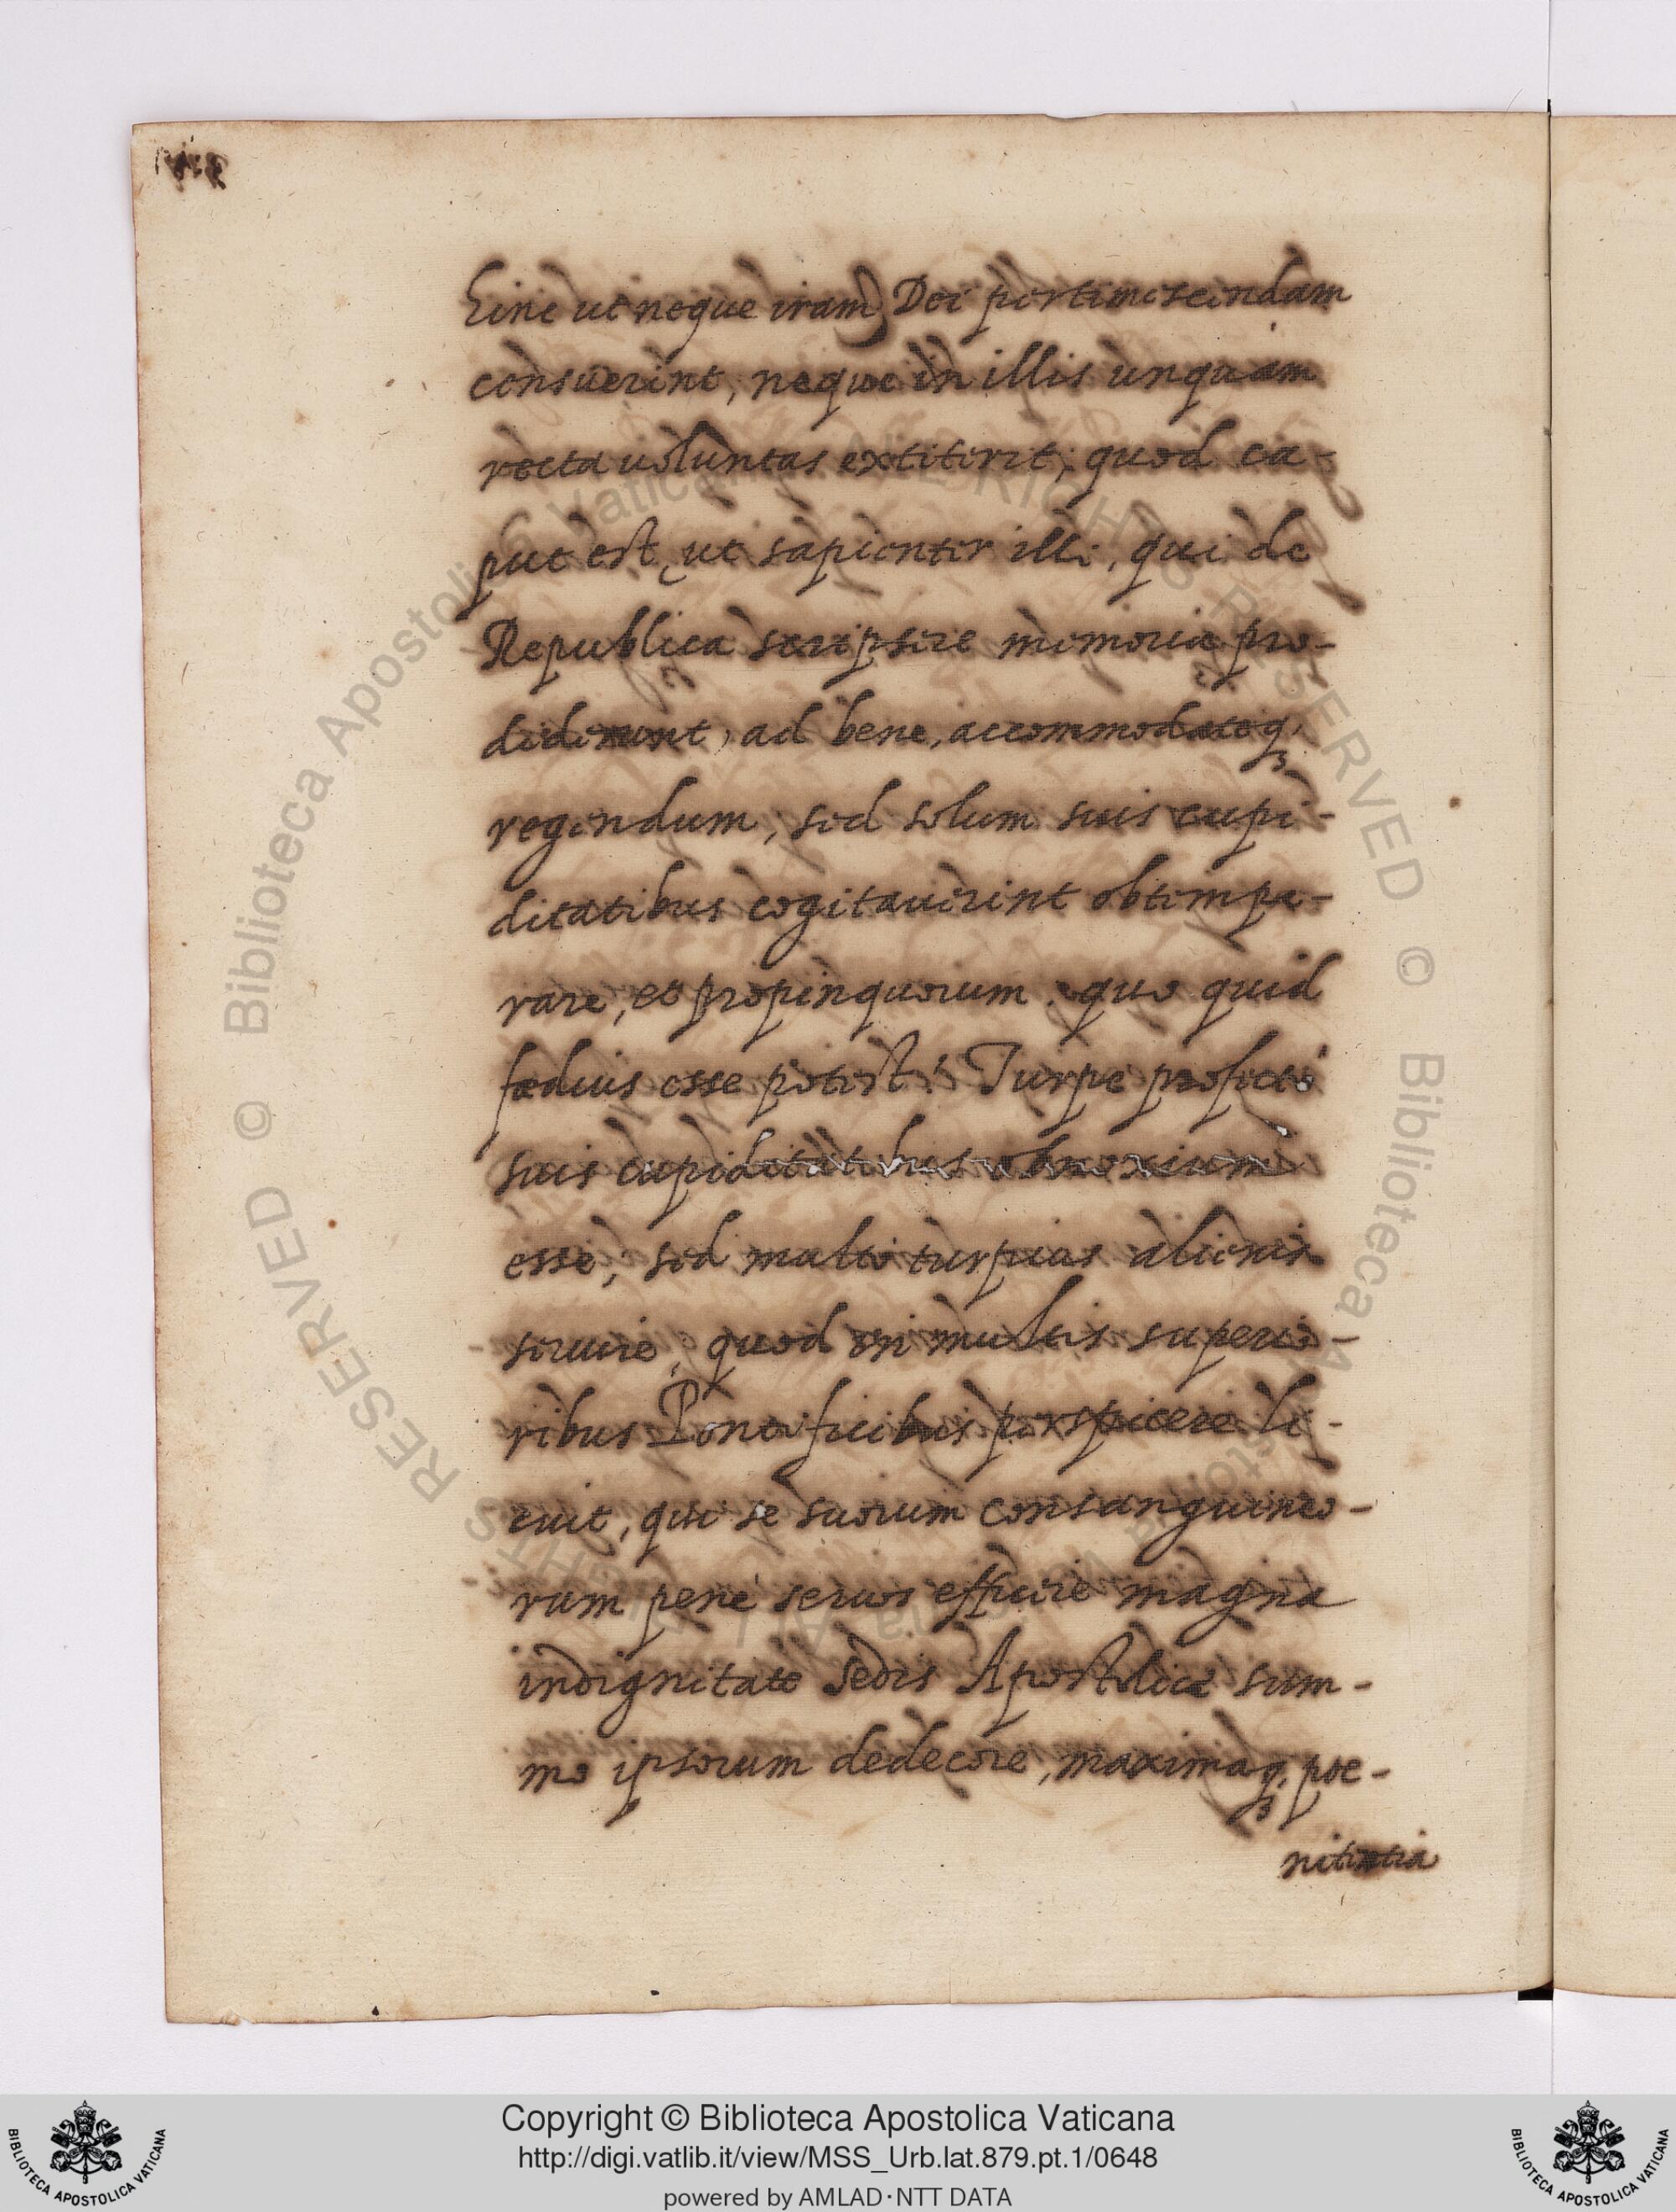 hinc ut neque iram Dei pertimescendam
censuerint, neque in illis unquam
recta uoluntas extiterit; quod ca-
put est, ut sapienter illi, qui de
Republica scripsere memoriæ pro-
diderunt, ad bene, accommodateq,
regendum, sed solum suis cupi-
ditatibus cogitauerint obtempe-
rare, et propinquorum. quo quid
fædius esse potest? Turpe profectò
suis cupiditatibus obnoxium
esse, sed multo turpius alienis
seruire, quod in multis superio-
ribus Pontificibus perspicere li-
cuit, qui se suorum consanguineo-
rum penè seruos effecere magna
indignitate Sedis Apostolicæ sum-
mo ipsorum dedecore, maximaq, poe-
nitentia
© Biblioteca Apostolica Vaticana ALL RIGHTS RESERVED © Biblioteca Apostolica Vaticana ALL RIGHTS RESERVED
Copyright © Biblioteca Apostolica Vaticana
http://digi.vatlib.it/view/MSS_Urb.lat.879.pt.1/0648
powered by AMLAD·NTT DATA
BIBLIOTECA APOSTOLICA VATICANA
BIBLIOTECA APOSTOLICA VATICANA